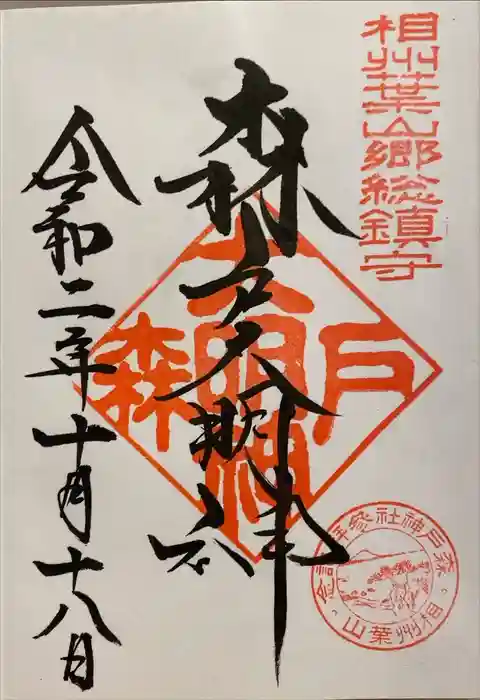 相州葉山郷総鎮守
森戸大明神
森戸大明神
令和二年十月十八日
森戸神社参拝記念
相州葉山